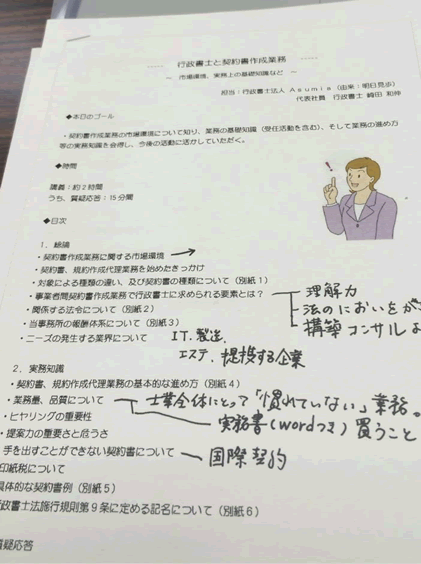 行政書士と契約書作成業務
～ 市場環境、実務上の基礎知識など ～
担当：行政書士法人 Asumia（由来：明日見歩）
代表社員 行政書士 崎田 和伸
◆本日のゴール
・契約書作成業務の市場環境について知り、業務の基礎知識（受任活動を含む）、そして業務の進め方
等の実務知識を会得し、今後の活動に活かしていただく。
◆時間
講義：約2時間
うち、質疑応答：15分間
◆目次
1．総論
・契約書作成業務に関する市場環境 →
・契約書、規約作成代理業務を始めたきっかけ
・対象による種類の違い、及び契約書の種類について（別紙1）
・事業者間契約書作成業務で行政書士に求められる要素とは？
理解力
法のにおいをか
構築 コンサル
・関係する法令について（別紙2）
・当事務所の報酬体系について（別紙3）
・ニーズの発生する業界について
IT. 製造.
エステ. 提投する企業
2．実務知識
・契約書、規約作成代理業務の基本的な進め方（別紙4）
・業務量、品質について
士業全体にとって「慣れていない」業務。
実務書(wordつき)買うこと
・ヒヤリングの重要性
・提案力の重要さと危うさ
手を出すことができない契約書について
国際契約
印紙税について
具体的な契約書例（別紙5）
政書士法施行規則第9条に定める記名について（別紙6）
質疑応答